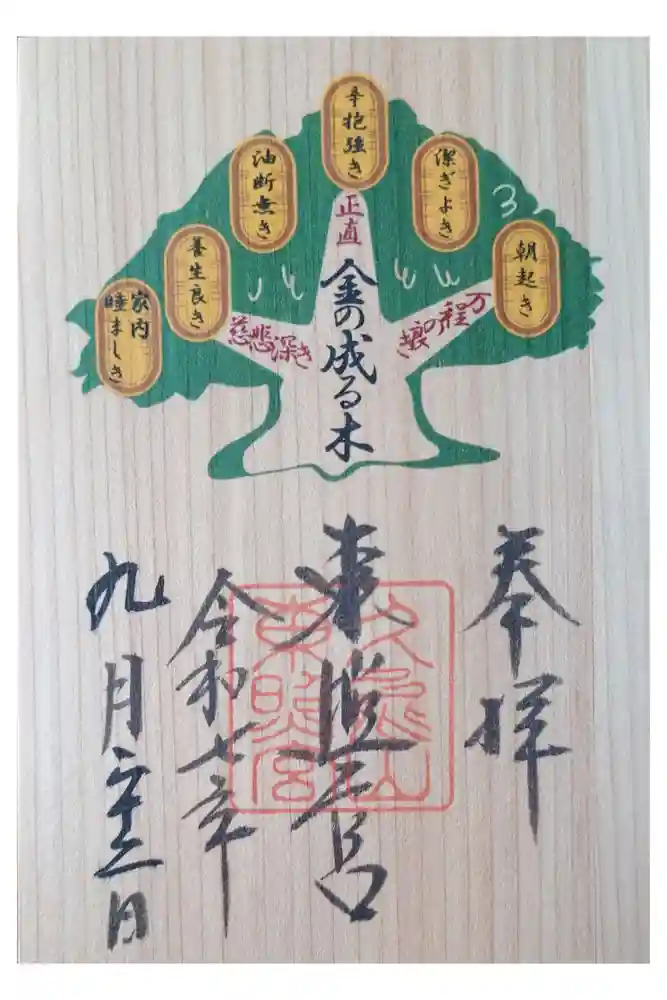 朝起き
潔ぎよき
辛抱強き
油断無き
養生良き
家内
睦ましき
万
程の
き
正直
慈悲深き
金の成る木
奉拝
東照宮
久能山
東照宮
令和七年
九月二十二日